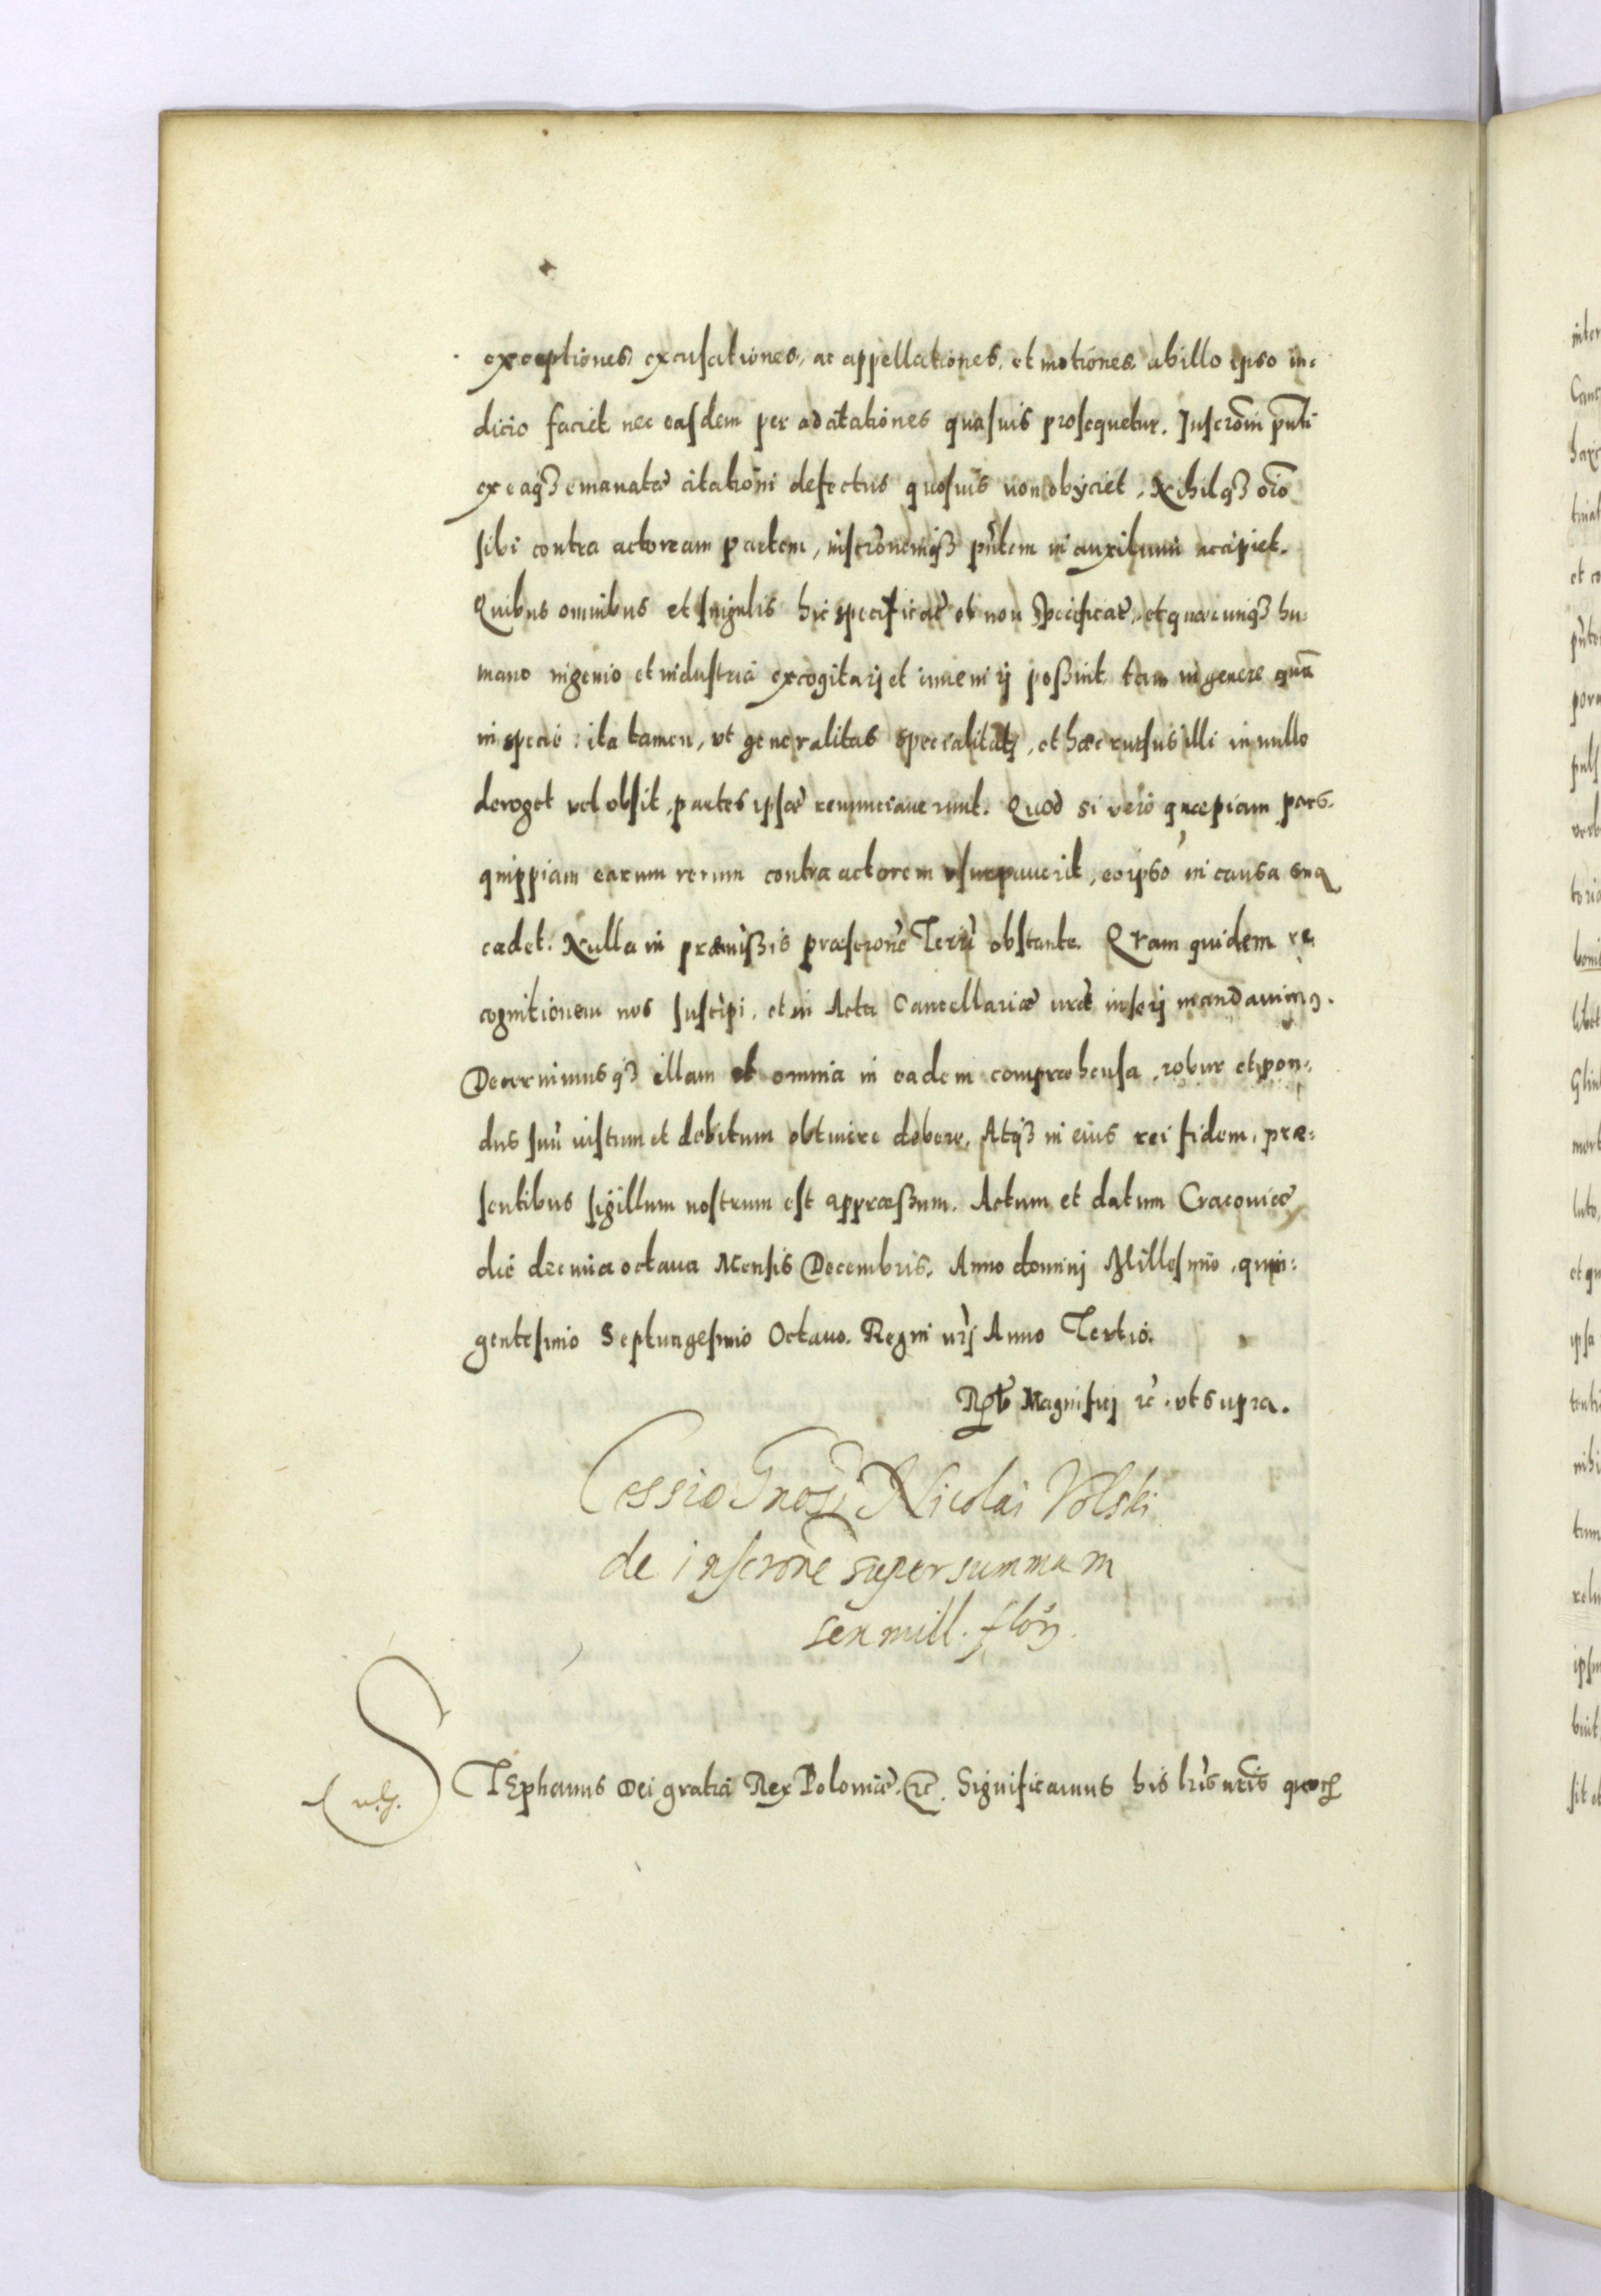 exceptiones, excusationes, ac appellationes, et motiones, ab illo ipso in:
dicio faciet, nec easdem per adcitationes quasuis prosequetur. Inscrõni pñti
ex eaqꝫ emanatæ citationi defectus quosuis non obijciet, Nihilqꝫ oĩo
sibi contra actoream partem, inscrõnemqꝫ pñtem in auxilium accipiet.
Quibus omnibus et singulis hic specificat̃ et non specificat̃, et quæcunqꝫ hu:
mano ingenio et industria excogitarj et inuenirj poßint, tam in genere quã
in specie: ita tamen, vt generalitas specialitatj, et hæc rursus illi in nullo
deroget vel obsit, partes ipsæ renunciauerunt. Quod si vero quæpiam pars
quippiam earum rerum contra actorem vsurpauerit, eo ipso in causa sua
cadet. Nulla in præmißis præscrõne Terrĩ obstante. Quam quidem re
cognitionem nos suscipi, et in Acta Cancellariæ nræ inserj mandauimꝰ.
Decernimusqꝫ illam et omnia in eadem compræhensa, robur et pon:
dus suũ iustum et debitum obtinere debere, Atqꝫ in eius rei fidem, præ:
sentibus sigillum nostrum est appræßum. Actum et datum Cracouiæ
die decima octaua Mensis Decembris. Anno dominj Millesimo, quin:
gentesimo Septuagesimo Octauo. Regni nr̃j Anno Tertio.
Magnificj ꝛc̃. vt supra.
Cessio Gñosi Nicolai Volski
de inscrõne super summam
sex mill. flõr.
STEphanus Dei gratia Rex Poloniæ. ꝛc̃. Significamus his lr̃is nr̃is quorꝫ